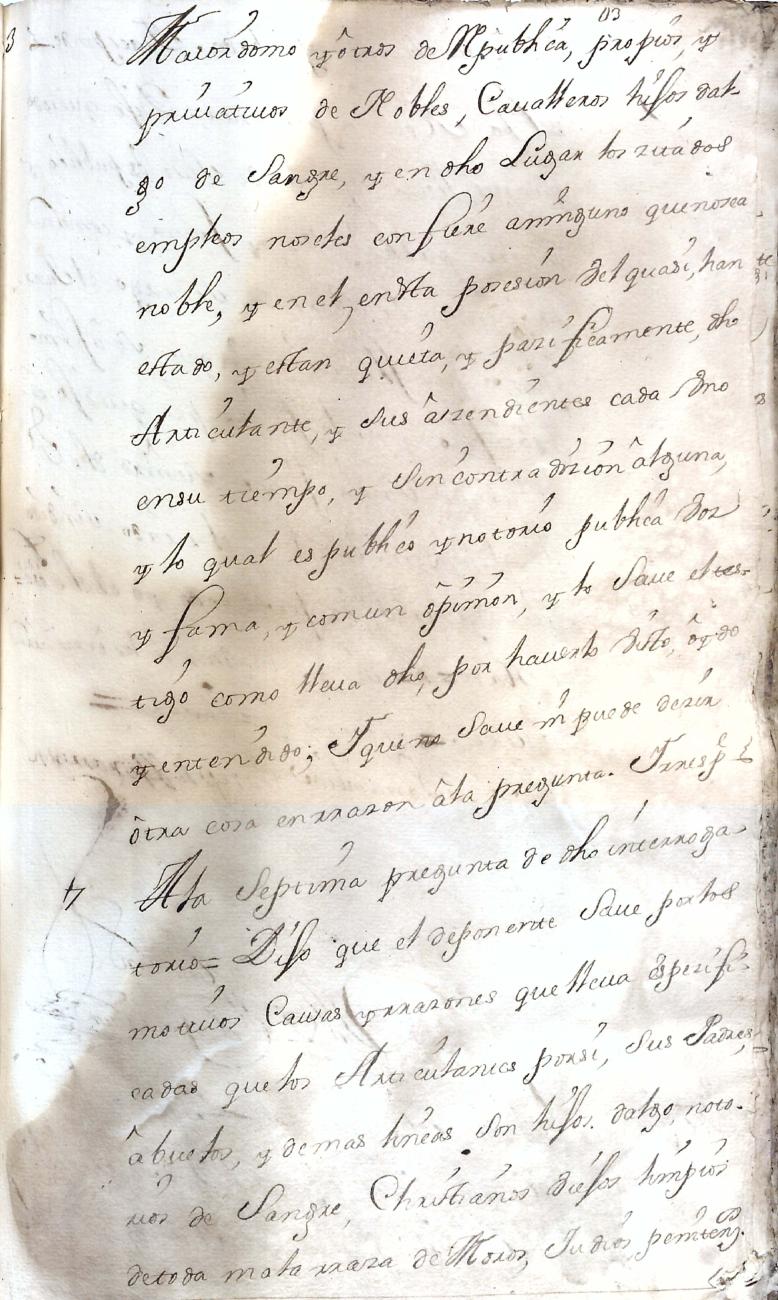 113
Maiordomo y otros de Republica, propios, y
privativos de Nobles, Cavalleros hijos dal-
go de Sangre, y en dho Lugar los zitados
empleos noseles confiere aninguno quenosea
noble, y en el, en dha posesion vel quasi, han
estado, y estan quieta, y pazificamente, dho
Articulante, y sus aszendientes cada vno
ensu tiempo, y sin contradizion alguna,
y lo qual es publico y notorio publica voz
y fama, y comun opinion, y lo save el tes-
tigo como lleva dho, por haverlo visto, oydo
y entendido; Y que no save ni puede dezir
otra cosa enrrazon ala pregunta. Y resp.
7 Ala Septima pregunta de dho interroga-
torio= Dijo que el deponente save por los
motivos Causas y rrazones que lleva espezifi-
cadas que los Articulantes porsi, sus Padres,
abuelos, y demas lineas son hijos dalgo noto-
rios de Sangre, Christianos viejos limpios
detoda mala rraza de Moros, Judios, penitenz.